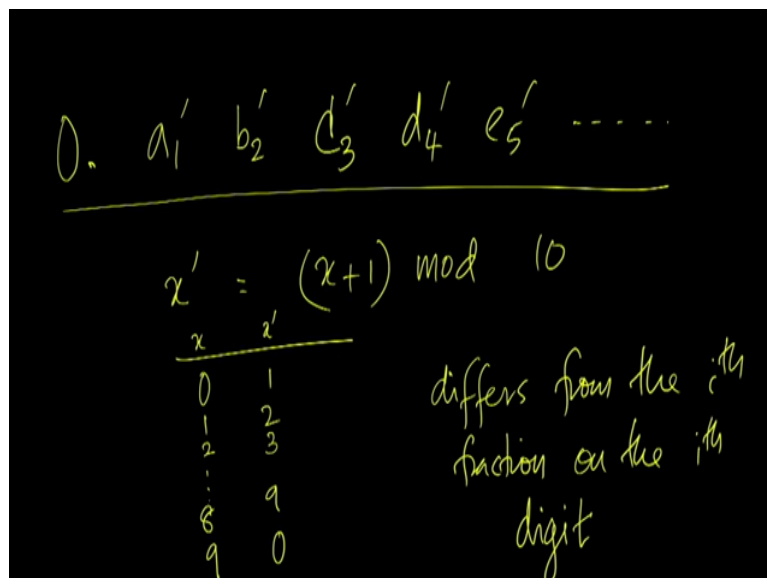 0. a₁' b₂' c₃' d₄' e₅' -----
x' = (x+1) mod 10
x x'
0 1
1 2
2 3
⋮
8 9
9 0
differs from the iᵗʰ
fraction on the iᵗʰ
digit